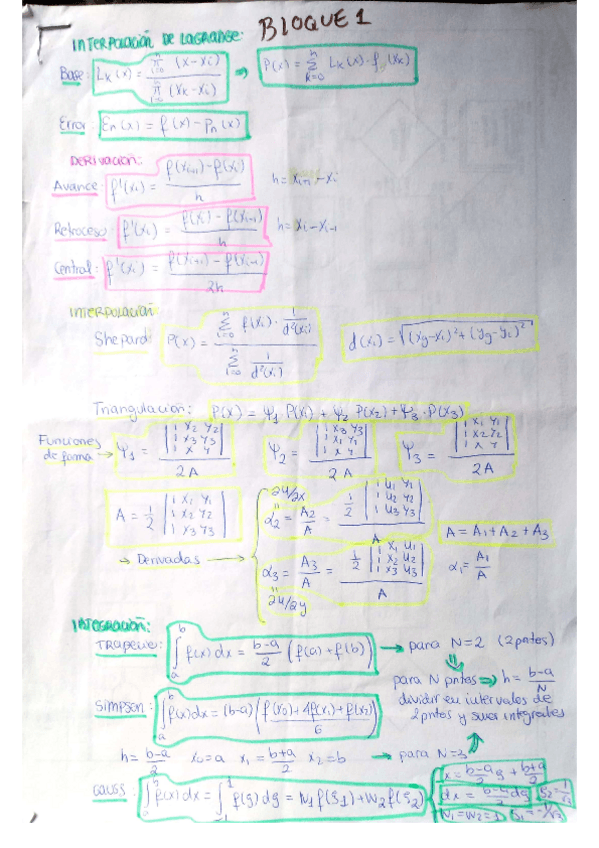 BLOQUE 1
INTERPOLACIÓN DE LAGRANGE:
Base: Lk(x) = π i=0 n (x-xi) / π i=0 n (xk-xi) → P(x) = Σ k=0 n Lk(x)·f(xk)
Error: En(x) = f(x) - Pn(x)
DERIVACIÓN:
Avance: f'(xi) = f(xi+1)-f(xi) / h    h = xi+1-xi
Retroceso: f'(xi) = f(xi)-f(xi-1) / h    h = xi-xi-1
Central: f'(xi) = f(xi+1)-f(xi-1) / 2h
INTERPOLACIÓN
Shepard: P(x) = Σ i=0 n f(xi)· 1/d²(xi) / Σ i=0 n 1/d²(xi)    d(xi) = √(xg-xi)²+(yg-yi)²
Triangulación: P(x) = Ψ1·P(x1) + Ψ2·P(x2) + Ψ3·P(x3)
Funciones de forma → Ψ1 = |1 x2 y2; 1 x3 y3; 1 x y| / 2A    Ψ2 = |1 x3 y3; 1 x1 y1; 1 x y| / 2A    Ψ3 = |1 x1 y1; 1 x2 y2; 1 x y| / 2A
A = 1/2 |1 x1 y1; 1 x2 y2; 1 x3 y3|
→ Derivadas →
∂u/∂x
α2 = A2/A = 1/2 |1 u1 y1; 1 u2 y2; 1 u3 y3| / A    A = A1+A2+A3
α3 = A3/A = 1/2 |1 x1 u1; 1 x2 u2; 1 x3 u3| / A    α1 = A1/A
∂u/∂y
INTEGRACIÓN:
TRAPECIO: ∫ a b f(x)dx = b-a/2 (f(a)+f(b)) → para N=2 (2 pntos)
para N pntos ⇒ h = b-a/N
dividir en intervalos de
2 pntos y sumar integrales
Simpson: ∫ a b f(x)dx = (b-a) (f(x0)+4f(x1)+f(x2) / 6)
h = b-a/2    x0=a    x1 = b+a/2    x2=b → para N=3
GAUSS: ∫ a b f(x)dx = ∫ -1 1 f(ξ)dξ = W1f(ξ1)+W2f(ξ2)
x = b-a/2 ξ + b+a/2
dx = b-a/2 dξ    ξ2 = 1/√3
W1=W2=1    ξ1 = -1/√3